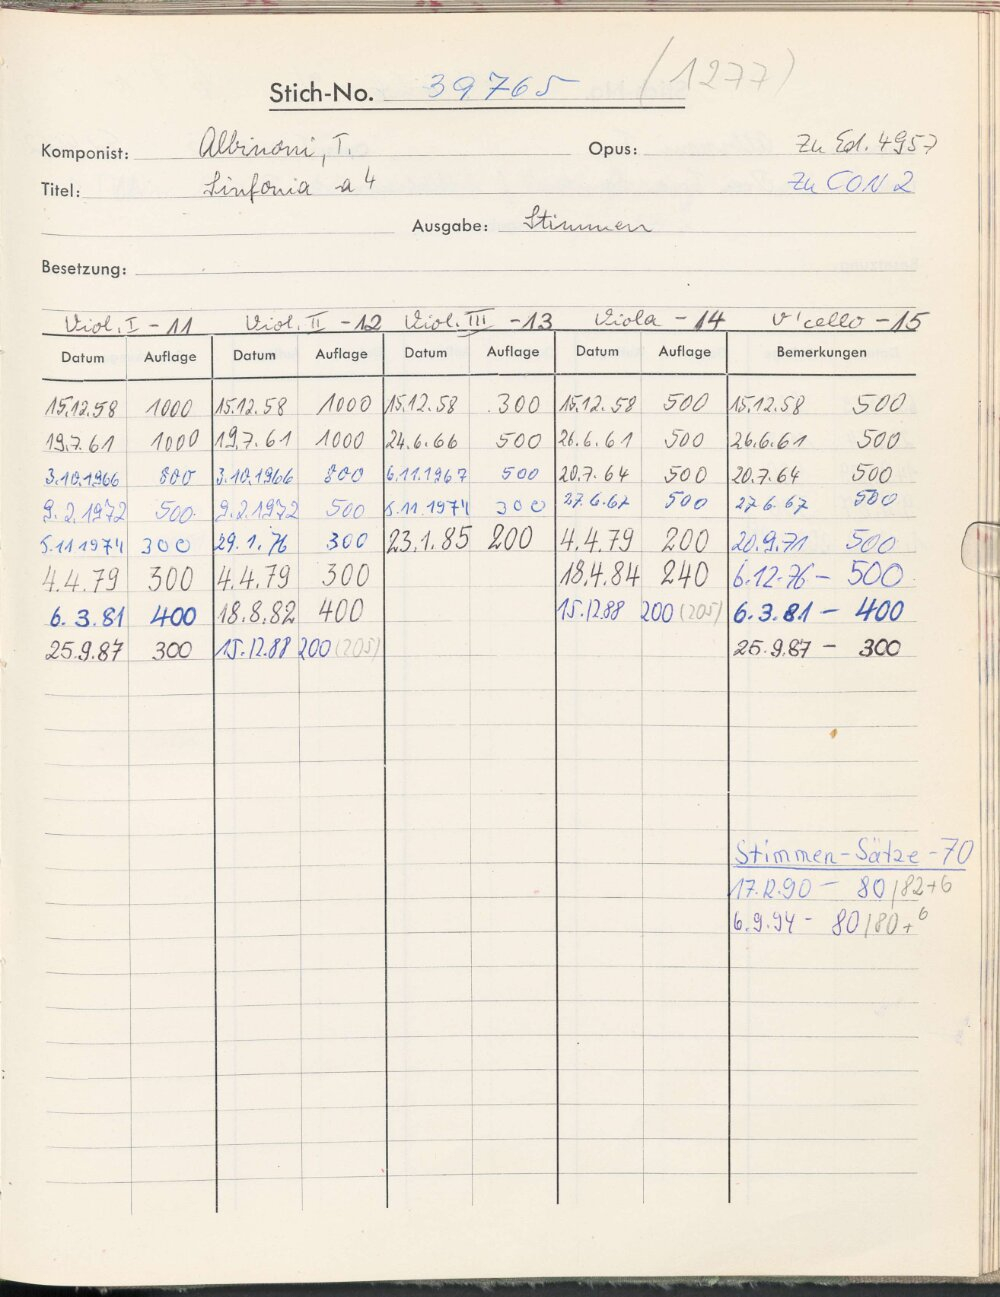 Stich-No. 39765 (1277)
Komponist: Albinoni, T. Opus: Zu Ed. 4957
Titel: Sinfonia a 4 Zu CON 2
Ausgabe: Stimmen
Besetzung:
Viol. I - 11 Viol. II - 12 Viol. III - 13 Viola - 14 V'cello - 15
Datum Auflage Datum Auflage Datum Auflage Datum Auflage Bemerkungen
15.12.58 1000 15.12.58 1000 15.12.58 300 15.12.58 500 15.12.58 500
19.7.61 1000 19.7.61 1000 24.6.66 500 26.6.61 500 26.6.61 500
3.10.1966 800 3.10.1966 800 6.11.1967 500 20.7.64 500 20.7.64 500
9.2.1972 500 9.2.1972 500 5.11.1974 300 27.6.67 500 27.6.67 500
5.11.1974 300 29.1.76 300 23.1.85 200 4.4.79 200 20.9.71 500
4.4.79 300 4.4.79 300 18.4.84 240 6.12.76 - 500
6.3.81 400 18.8.82 400 15.12.88 200 (205) 6.3.81 - 400
25.9.87 300 15.12.88 200 (205) 25.9.87 - 300
Stimmen-Sätze - 70
17.12.90 - 80/82+6
6.9.94 - 80/80+6